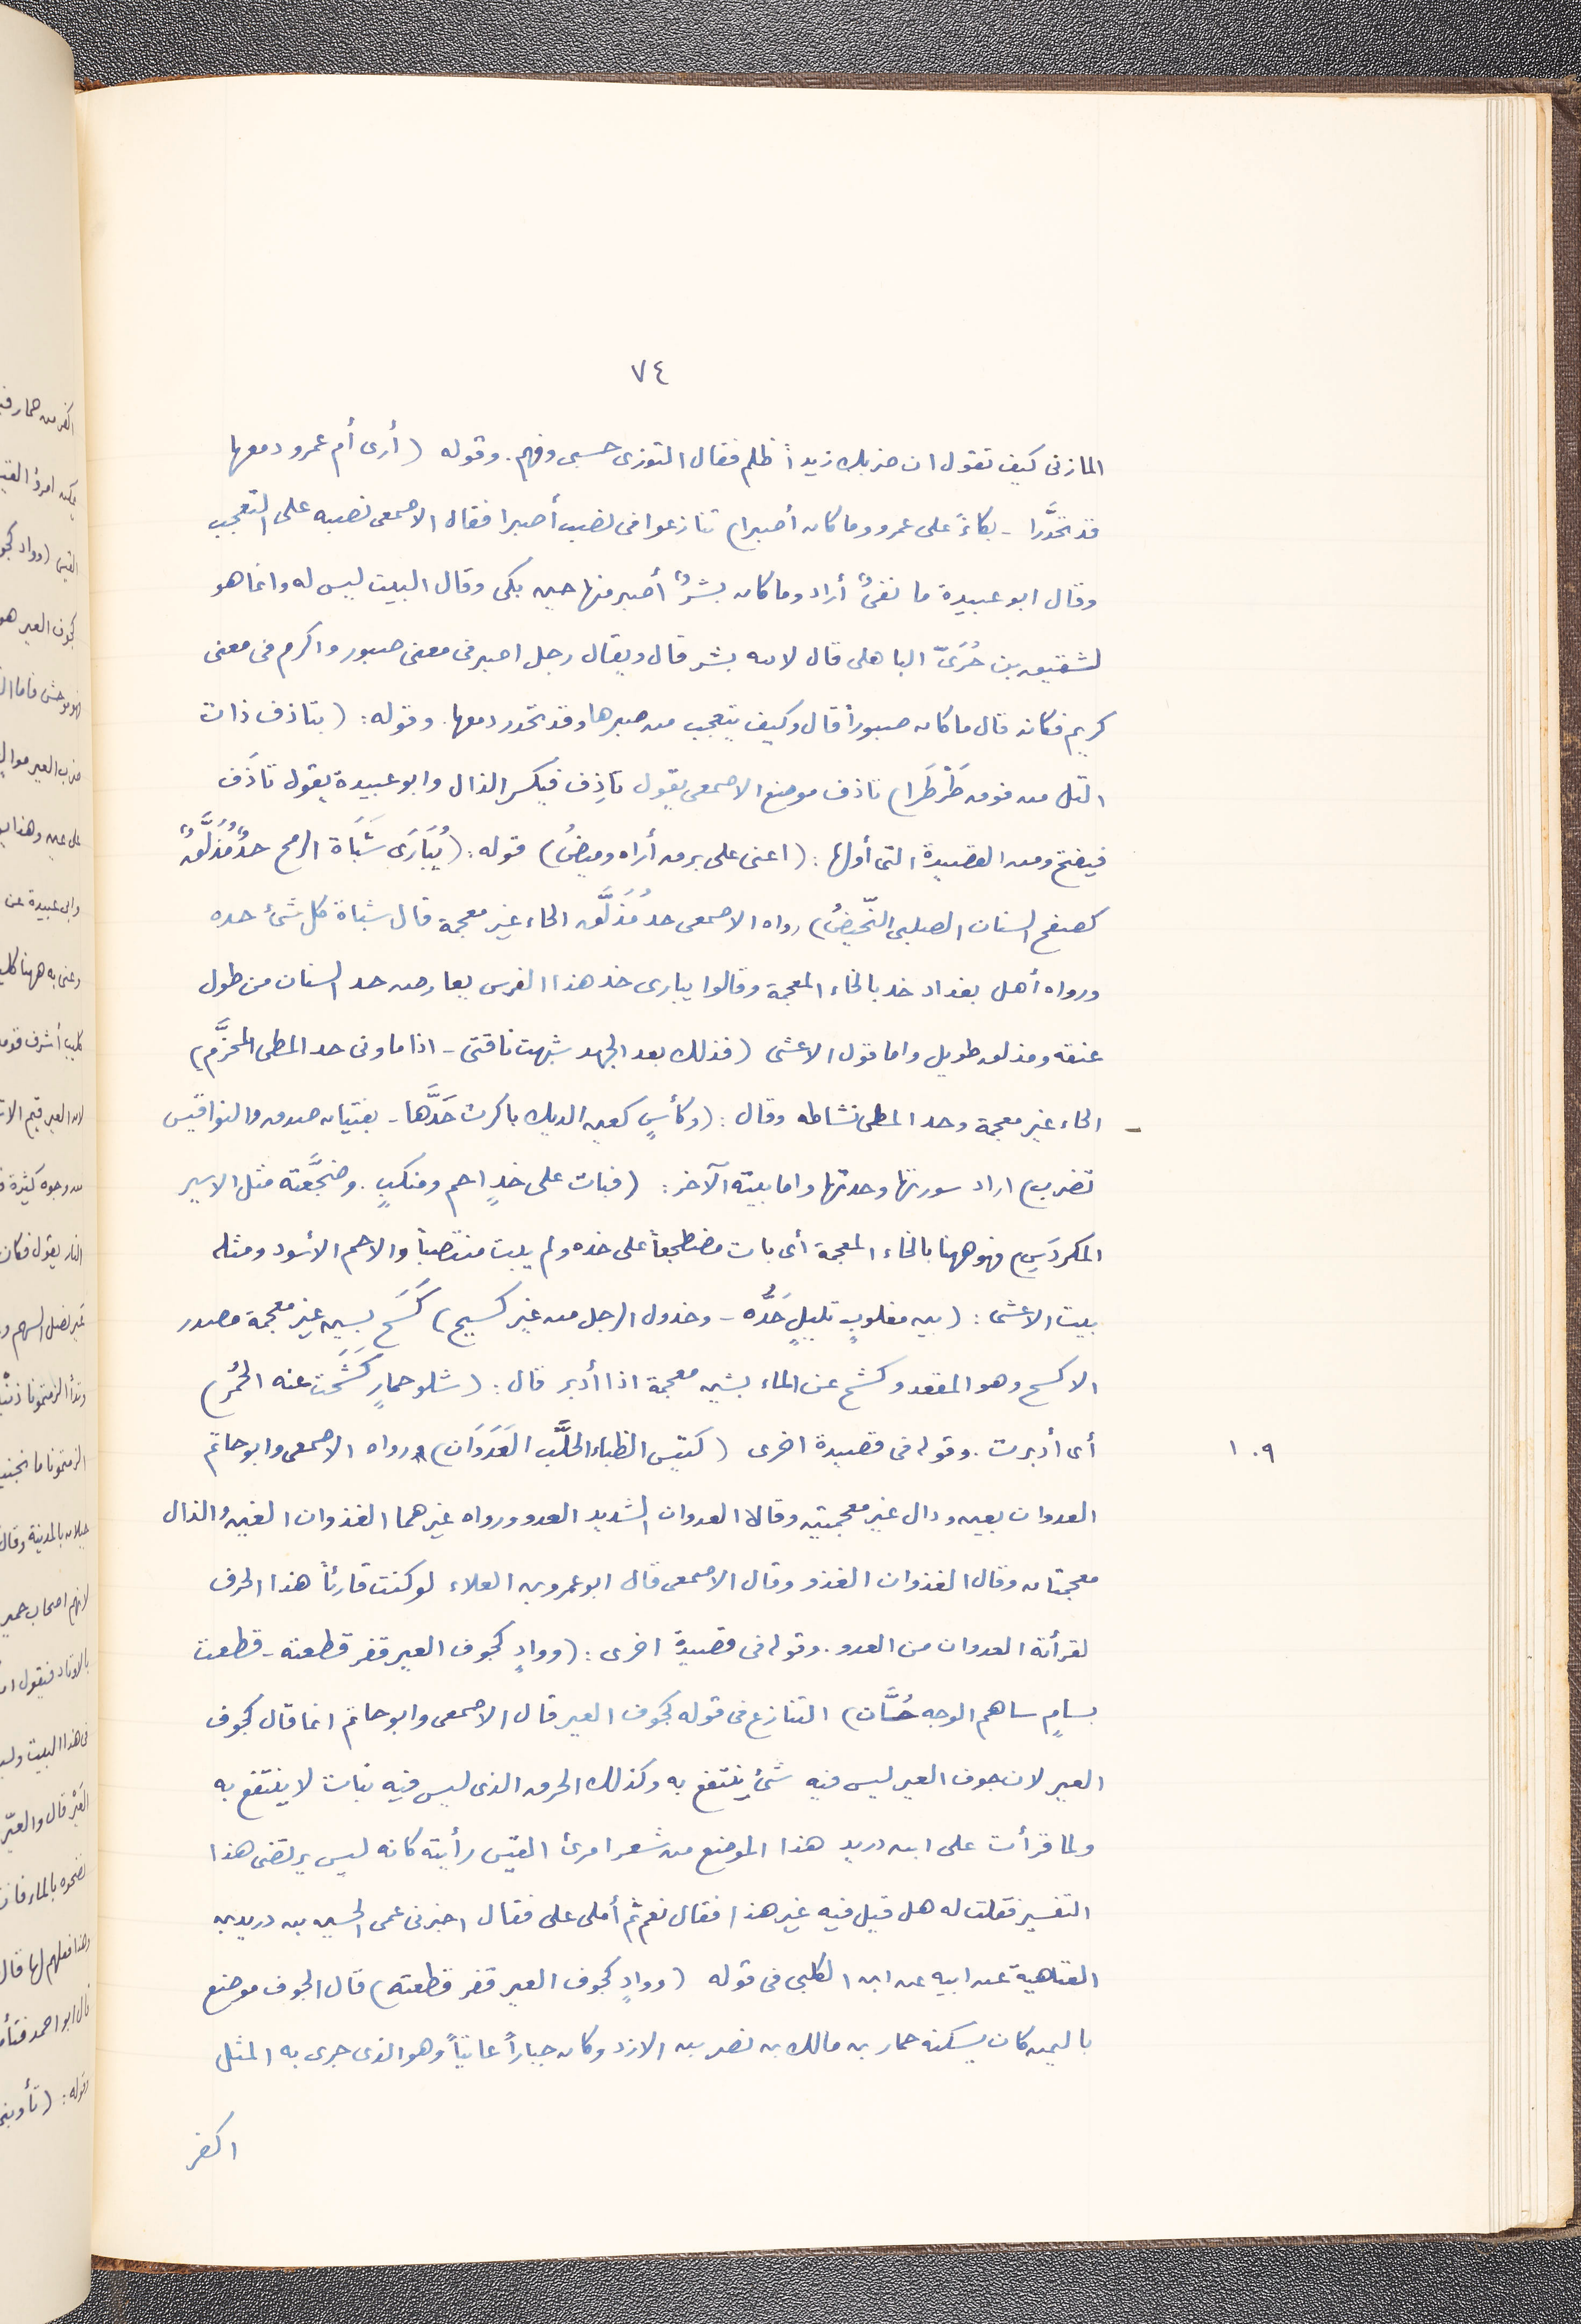 ٧٤
المازنى كيف تقول ان ضربك زيداً ظلم فقال التوزى حسبى وفهم. وقوله (أرى أم عمرو دمعها
قد تحَدَّرا - بكاءً على عمرو وما كان أصبرا) تنازعوا فى نصب أصبرا فقال الاصمعى نصبه على التعجب
وقال ابو عبيدة ما نفىٌ أراد وما كان بشرٌ أصبر منها حين بكى وقال البيت ليس له وانما هو
لشقيق بن حُرَىّ الباهلى قال لابنه بشر قال ويقال رجل اصبر فى معنى صبور واكرم فى معنى
كريم فكانه قال ما كان صبوراً قال وكيف يتعجب من صبرها وقد تحدر دمعها. وقوله: (بتاذف ذات
التل من فوق طَرْطَرا) تاذف موضع الاصمعى يقول تاذِف فيكسر الذال وابو عبيدة يقول تاذَف
فيفتح ومن القصيدة التى أولها: (اعنى على برق أراه وميضُ) قوله: (يُبَارَى شَبَاة الرمح حدٌّ مُذَلَّقٌ
كصفح السنان الصلبى النّحيضُ) رواه الاصمعى حد مُذلَّق الحاء غير معجمة قال شباة كل شئ حده
ورواه أهل بغداد خد بالخاء المعجمة وقالوا يبارى خد هذا الفرس يعارض حد السنان من طول
عنقه ومذلق طويل واما قول الاعشى (فذلك بعد الجهد شبهت ناقتى - اذا ما ونى حد المطى المخزَّم)
الحاء غير معجمة وحد المطى نشاطه وقال: (وكأسٍ كعين الديك باكرت حَدَّها - بفتيان صدق والنواقيس
تضرب) اراد سورتها وحدتها واما بيته الآخر: (فبات على خدٍ احم ومنكبٍ. وضجَّعته مثل الاسير
المكردَسِ) فهو ههنا بالخاء المعجمة أى بات مضطجعاً على خده ولم يبت منتصباً والاحم الأسود ومثله
بيت الاعشى: (بين مغلوبٍ تليلٍ خَدُّه - وخذول الرجل من غير كسيح) كَسَح بسين غير معجمة مصدر
الاكسح وهو المقعد وكشح عن الماء بشين معجمة اذا أدبر قال: (شلو حمارٍ كَشَحَت عنه الحُمُر)
أى أدبرت. وقوله فى قصيدة اخرى (كتيس الظباء الحلَّب العَدَوَان) رواه الاصمعى وابو حاتم
١٠٩
العدوان بعين ودال غير معجمتين وقالا العدوان الشديد العدو ورواه غيرهما الغذوان الغين والذال
معجمتان وقال الغذوان الغذو وقال الاصمعى قال ابو عمرو بن العلاء لو كنت قارئاً هذا الحرف
لقرأته العدوان من العدو. وقوله فى قصيدة اخرى: (ووادٍ كجوف العير قفر قطعته - قطعت
بسامٍ ساهم الوجه حُسَّان) التنازع فى قوله كجوف العير قال الاصمعى وابو حاتم انما قال كجوف
العير لان جوف العير ليس فيه شئ ينتفع به وكذلك الخرق الذى ليس فيه نبات لا ينتفع به
ولما قرأت على ابن دريد هذا الموضع من شعر امرئ القيس رأيته كانه ليس يرتضى هذا
التفسير فقلت له هل قيل فيه غير هذا فقال نعم ثم أملى على فقال اخبرنى عمى الحسين بن دريد بن
العتاهية عن ابيه عن ابن الكلبى فى قوله (ووادٍ كجوف العير قفر قطعته) قال الجوف موضع
باليمن كان يسكنه حمار بن مالك بن نصر بن الازد وكان جباراً عاتياً وهو الذى جرى به المثل
اكفر